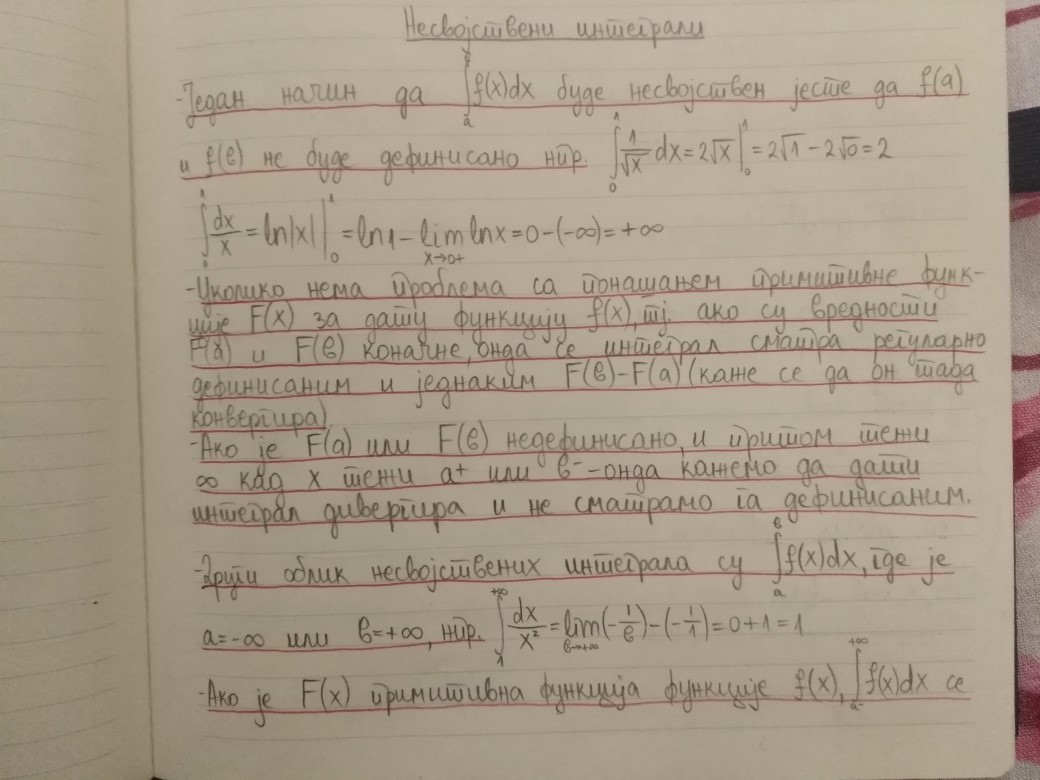 Несвојствени интеграли
-Један начин да ∫_a^b f(x)dx буде несвојствен јесте да f(a)
и f(b) не буде дефинисано нпр. ∫_0^1 1/√x dx=2√x|_0^1=2√1-2√0=2
∫_0^1 dx/x=ln|x||_0^1=ln1-lim_{x→0+} lnx=0-(-∞)=+∞
-Уколико нема проблема са понашањем примитивне функ-
ције F(x) за дату функцију f(x), тј. ако су вредности
F(a) и F(b) коначне, онда се интеграл сматра регуларно
дефинисаним и једнаким F(b)-F(a) (каже се да он тада
конвергира)
-Ако је F(a) или F(b) недефинисано, и притом тежи
∞ кад x тежи a+ или b- -онда кажемо да дати
интеграл дивергира и не сматрамо га дефинисаним.
-Други облик несвојствених интеграла су ∫_a^b f(x)dx, где је
a=-∞ или b=+∞, нпр. ∫_1^{+∞} dx/x²=lim_{b→+∞}(-1/b)-(-1/1)=0+1=1
-Ако је F(x) примитивна функција функције f(x), ∫_a^{+∞} f(x)dx се